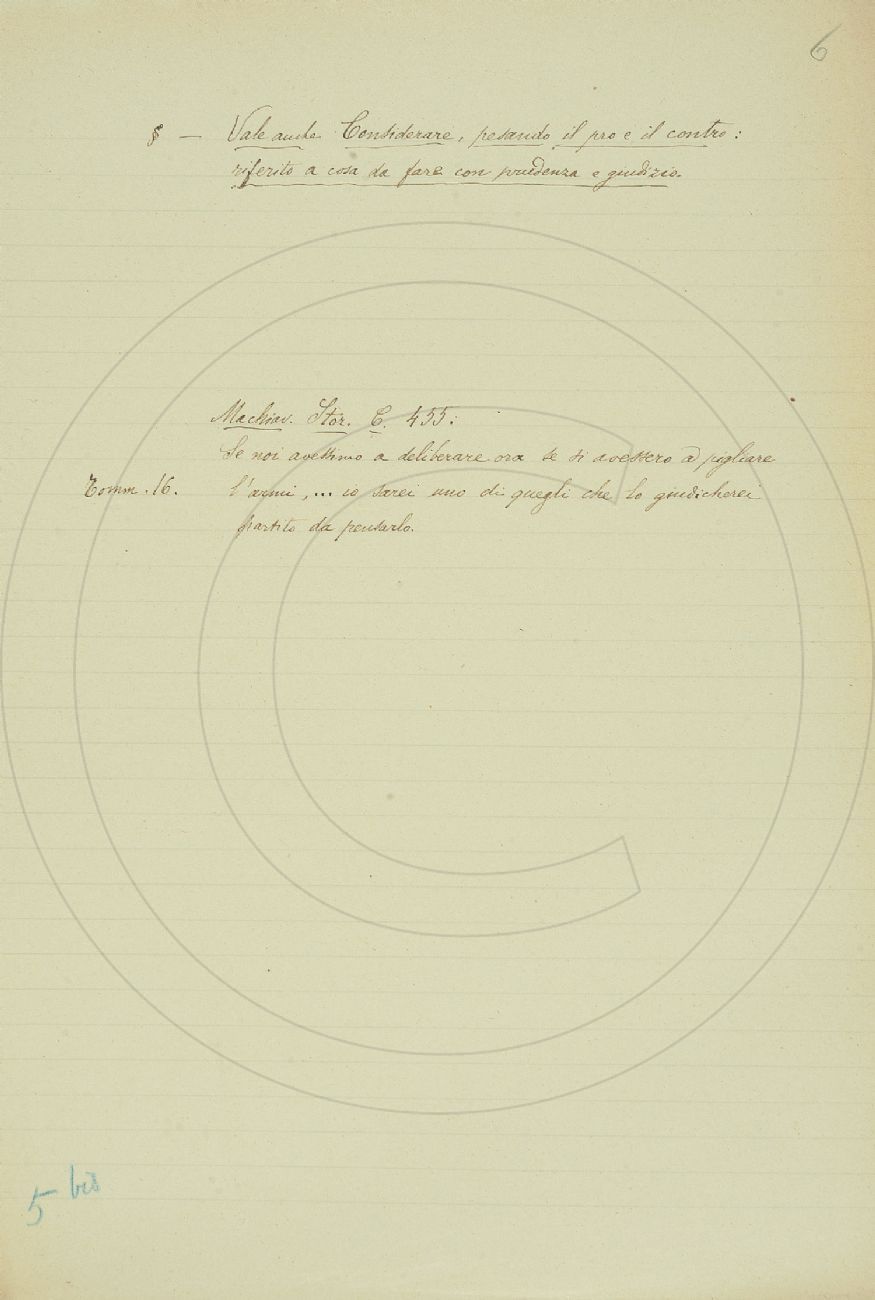 6
§ — Vale anche Considerare, pesando il pro e il contro:
riferito a cosa da fare con prudenza e giudizio.
Machiav. Stor. C. 455:
Se noi avessimo a deliberare ora se si avessero a pigliare
Tomm. 16. l'armi, ... io sarei uno di quegli che lo giudicherei
partito da pensarlo.
5 bis